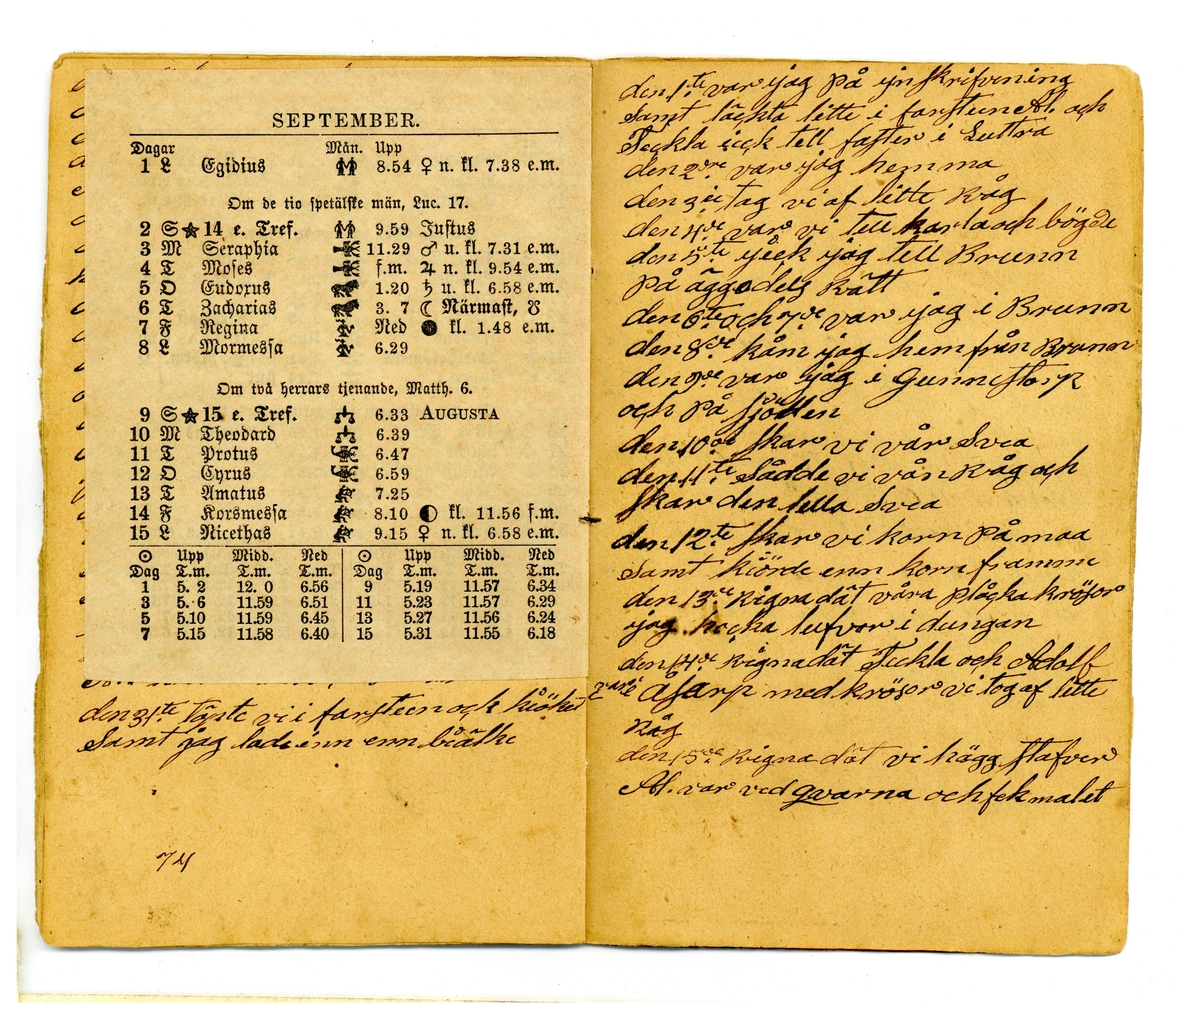 SEPTEMBER.
Dagar Mån. Upp
1 L Egidius 8.54 ♀ n. kl. 7.38 e.m.
Om de tio spetälske män, Luc. 17.
2 S ★ 14 e. Tref. 9.59 Justus
3 M Seraphia 11.29 ♂ u. kl. 7.31 e.m.
4 T Moses f.m. ♃ n. kl. 9.54 e.m.
5 O Eudoxus 1.20 ♄ u. kl. 6.58 e.m.
6 T Zacharias 3. 7 ☾ Närmast, ☋
7 F Regina Ned ● kl. 1.48 e.m.
8 L Mormessa 6.29
Om två herrars tjenande, Matth. 6.
9 S ★ 15 e. Tref. 6.33 AUGUSTA
10 M Theodard 6.39
11 T Protus 6.47
12 O Cyrus 6.59
13 T Amatus 7.25
14 F Korsmessa 8.10 ◐ kl. 11.56 f.m.
15 L Nicethas 9.15 ♀ n. kl. 6.58 e.m.
☉ Upp Midd. Ned ☉ Upp Midd. Ned
Dag T.m. T.m. T.m. Dag T.m. T.m. T.m.
1 5. 2 12. 0 6.56 9 5.19 11.57 6.34
3 5. 6 11.59 6.51 11 5.23 11.57 6.29
5 5.10 11.59 6.45 13 5.27 11.56 6.24
7 5.15 11.58 6.40 15 5.31 11.55 6.18
den 31te täpte vi i farsteen ock kiöket
Samt jag lade inn enn biälke
74
den 1te var ijag på ijnskrifvening
Samt täckta litte i farsteen Al. och
Teckla gick tell faster i Luttra
den 2dre var ijag hemma
den 3ei tag vi af litte Råg
den 4de var vi tell Karla och bögde
den 5te ijick ijag tell Brunn
på äggodels Rätt
den 6te och 7de var ijag i Brunn
den 8de kåm ijag hem från Brunn
den 9de var ijag i Gunnestorp
och på Sjötten
den 10de Skar vi vår Svea
den 11te Sådde vi vån Råg och
Skar den lella Svea
den 12te Skar vi korn på maa
Samt kiörde enn korn framme
den 13de Rigna dät våra plåcka krösor
ijag hacka tufvor i dungan
den 14de Rigna dät Teckla och Adolf
vare Åsarp med krösor vi tog af litte
Råg
den 15de Rigna dät vi hägg stafver
Al. var ved qvarna och fek malet